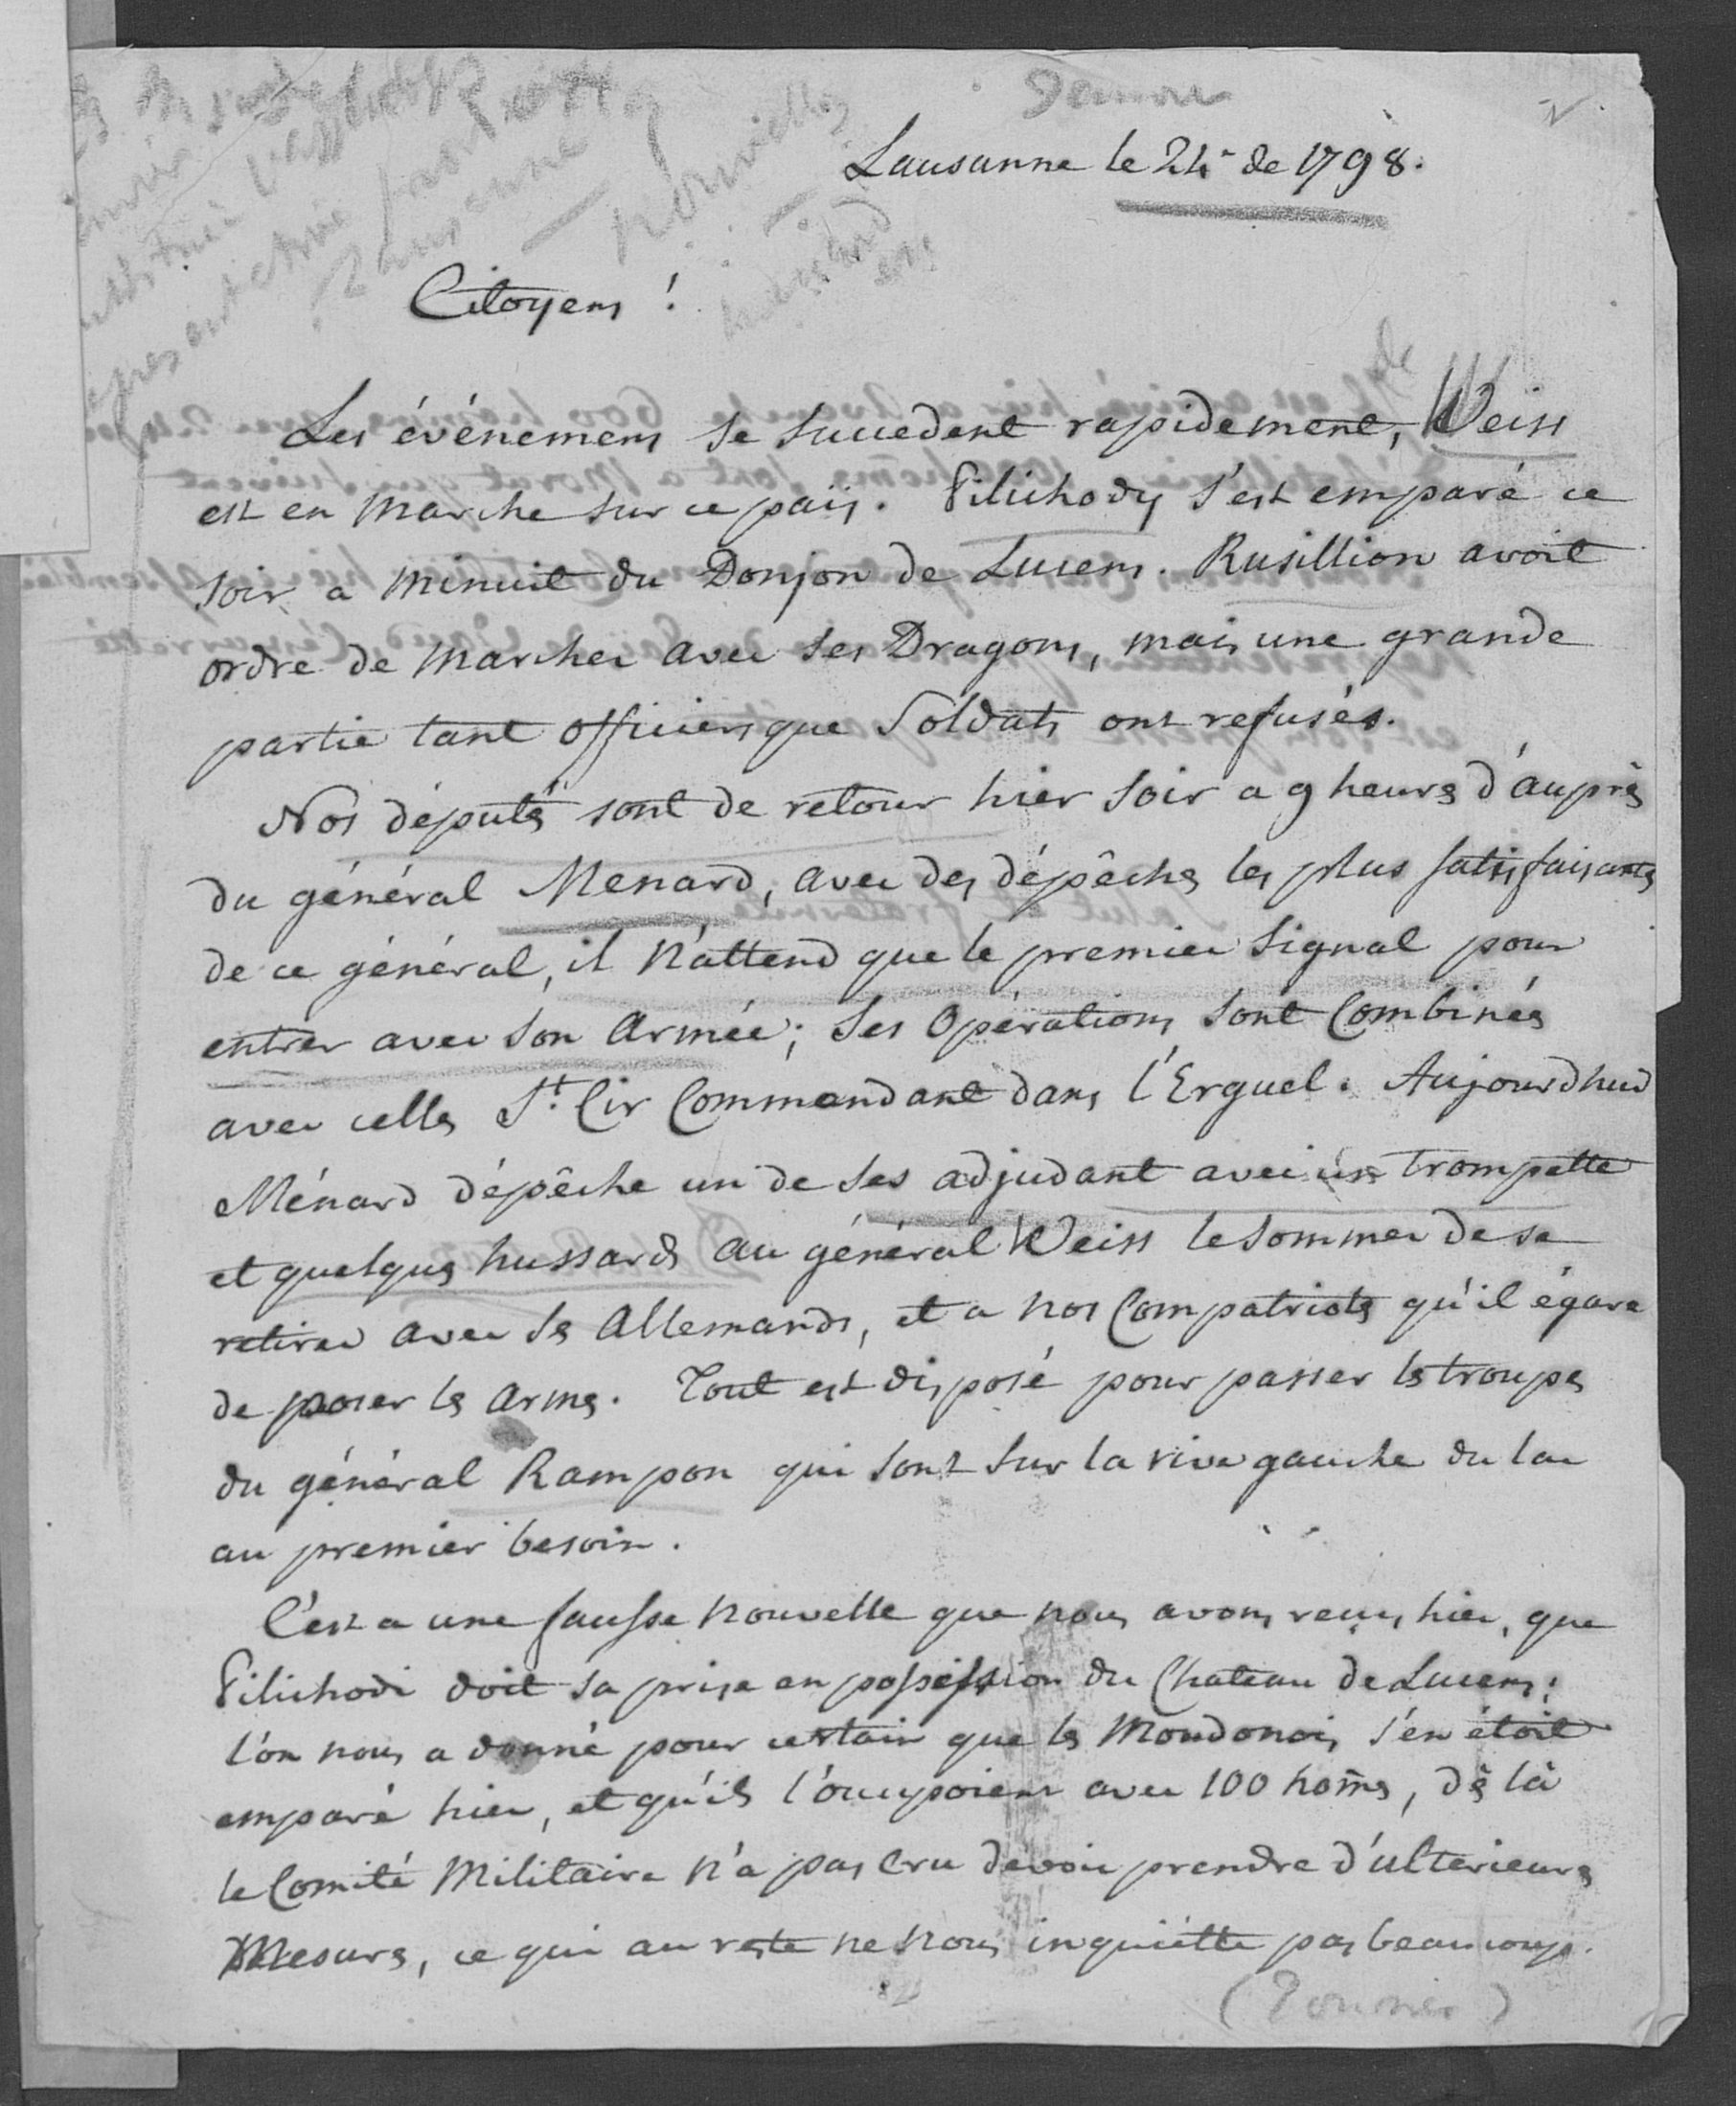 Lausanne le 24. de 1798.
Citoyens !
de
Les événemens se succedent rapidement, Weiss
est en marche sur ce païs. Pilichody s'est emparé ce
soir a minuit du Donjon de Lucens. Rusillion avoit
ordre de marcher avec ses Dragons, mais une grande
partie tant officiers que Soldats ont refusés.
Nos députés sont de retour hier soir a 9 heures d'auprès
du général Menard, avec des dépêches les plus satisfaisantes
de ce général, il n'attend que le premier signal pour
entrer avec son Armée ; Ses Opérations sont Combinées
avec celles St. Cir Commandant dans l'Erguel. Aujourdhud
Ménard dépêche un de ses adjudant avec un trompette
et quelques hussards au général Weiss le sommer de se
retirer avec ses Allemands, et a nos Compatriotes qu'il égare
de poser les armes. Tout est disposé pour passer les troupes
du général Rampon qui sont sur la rive gauche du lac
au premier besoin.
C'est a une fausse nouvelle que nous avons reçus hier, que
Pilichodi doit sa prise en possession du Chateau de Lucens ;
l'on nous a donné pour certain que les Moudonois s'en étoit
emparé hier, et qu'ils l'occupoient avec 100 hom̃es, dès là
le Comité Militaire n'a pas cru devoir prendre d'ulterieures
Mesures, ce qui au reste ne nous inquiétte pas beaucoup.